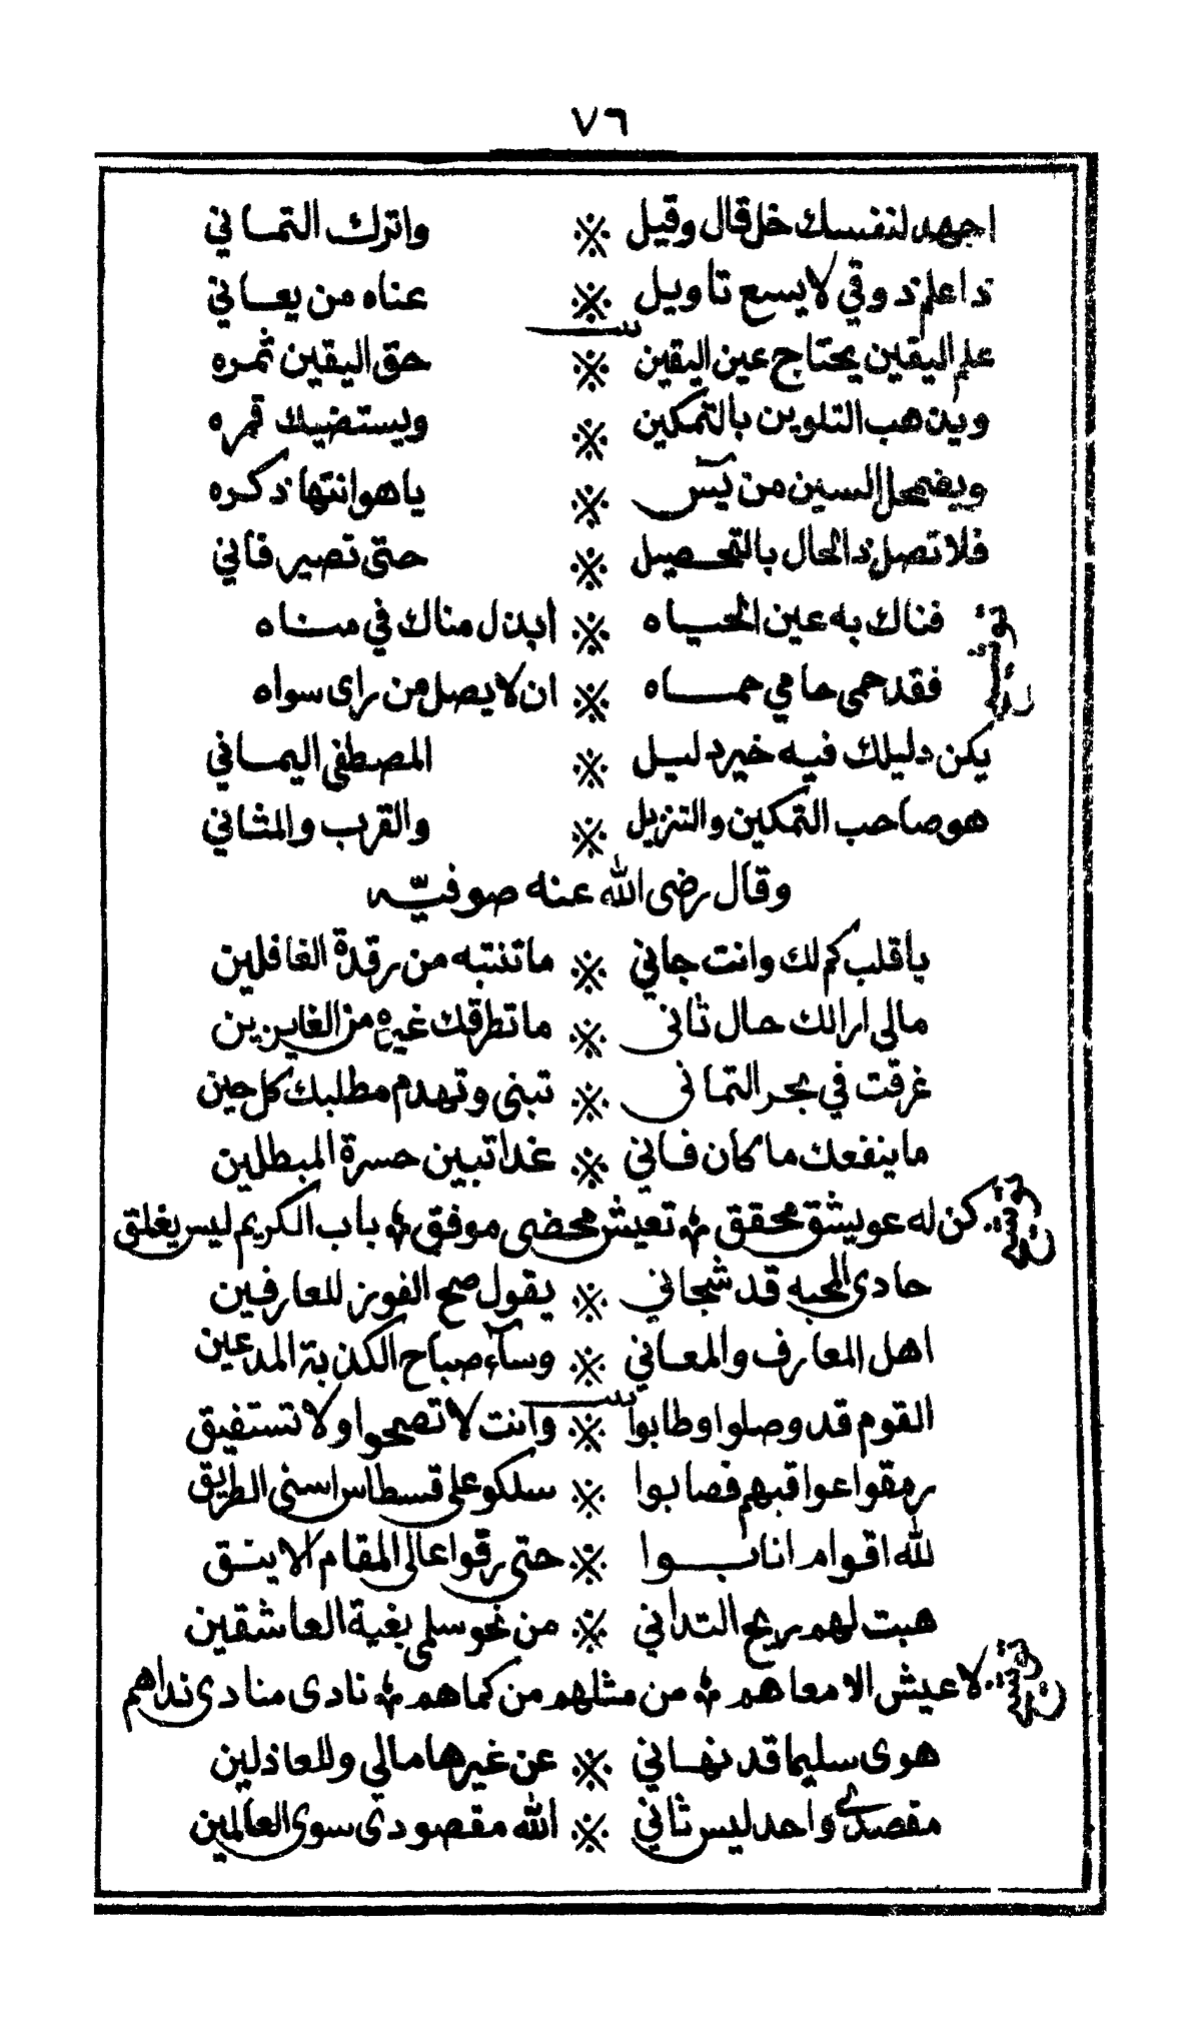 ٧٦
اجهد لنفسك خل قال وقيل ※ واترك التماني
ذا علم ذوقي لا يسع تاويل ※ عناه من يعاني
بيت
علم اليقين يحتاج عين اليقين ※ حق اليقين ثمره
ويذهب التلوين بالتمكين ※ ويستضيك قمره
ويضمحل السين من يس ※ ياهو انتها ذكره
فلا تصل ذا الحال بالتحصيل ※ حتى تصير فاني
توشيح
فناك به عين الحياه ※ ابذل مناك في مناه
فقد حمى حامي حماه ※ ان لا يصل من راى سواه
يكن دليلك فيه خير دليل ※ المصطفى اليماني
هو صاحب التمكين والتنزيل ※ والقرب والمثاني
وقال رضى الله عنه صوفيّه
ياقلب كم لك وانت جاني ※ ماتنتبه من رقدة الغافلين
مالى ارالك حال ثانى ※ ماتطرقك غيره من الغابرين
غرقت في بحر التمانى ※ تبنى وتهدم مطلبك كل حين
ماينفعك ماكان فاني ※ غدا تبين حسرة المبطلين
توشيح
كن له عويشق محقق ※ تعيش محضى موفق ※ باب الكريم ليس يغلق
حادى المحبه قد شجاني ※ يقول صح الفوز للعارفين
اهل المعارف والمعاني ※ وسآء صباح الكذبة المدعين
بيت
القوم قد وصلوا وطابوا ※ وانت لا تصحوا ولا تستفيق
رمقوا عواقبهم فصابوا ※ سلكو على قسطاس اسنى الطريق
لله اقوام انابوا ※ حتى رقوا عالى المقام الانيق
هبت لهم ريح التداني ※ من نحو سلمى بغية العاشقين
توشيح
لا عيش الا معاهم ※ من مثلهم من كماهم ※ نادى منادى نداهم
هوى سليما قد نهاني ※ عن غيرها مالي وللعاذلين
مقصدي واحد ليس ثاني ※ الله مقصودى سوى العالمين